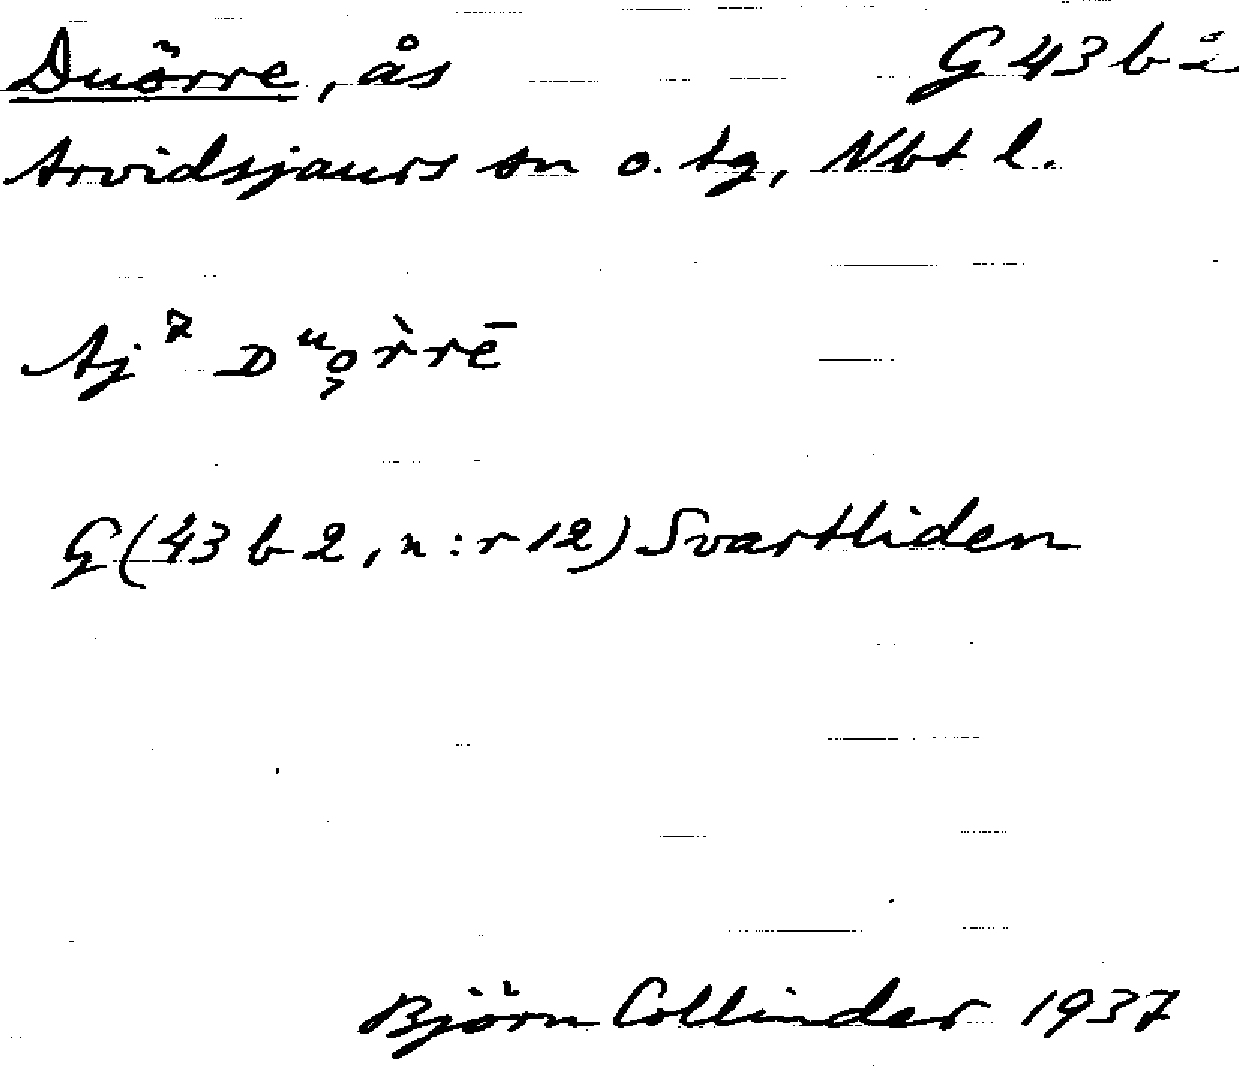 Duörre, ås G 43 b 2
Arvidsjaurs sn o. tg, Nbt l.
Aj⁷ ᴅᵘo̦r̀rē
G (43 b 2, n:r 12) Svartliden
Björn Collinder 1937